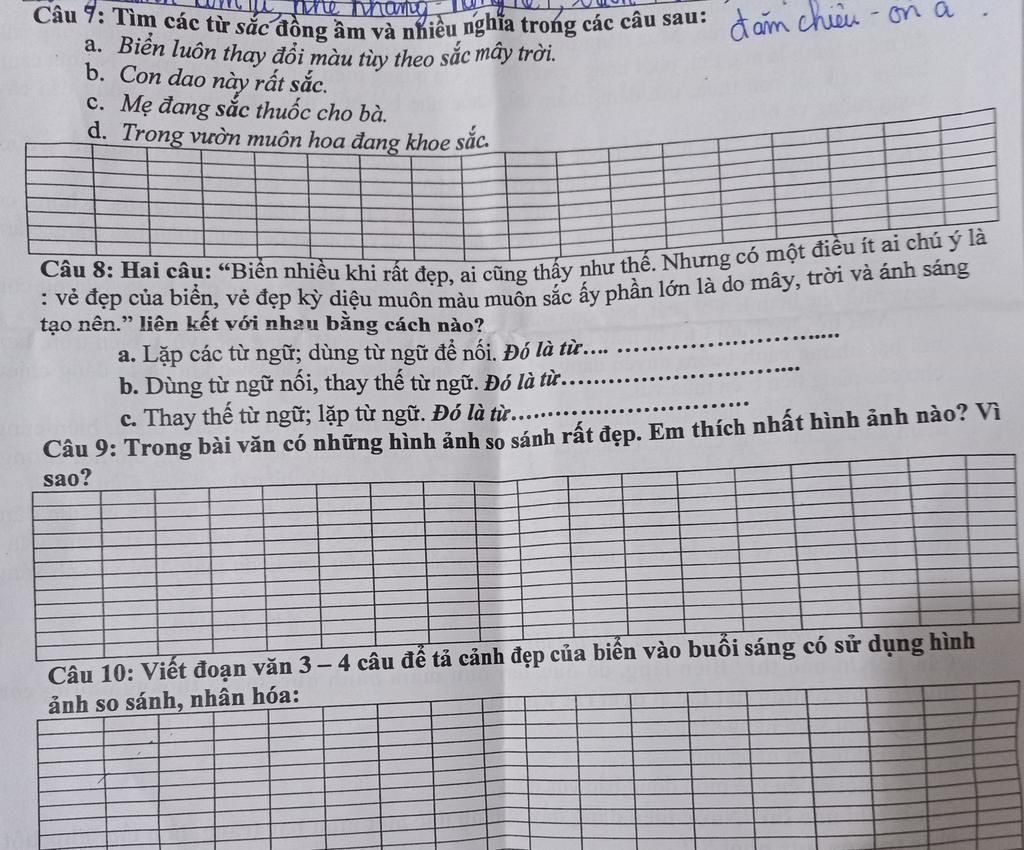 Câu 7: Tìm các từ sắc đồng âm và nhiều nghĩa trong các câu sau:
đăm chiêu - ơn ả
a. Biển luôn thay đổi màu tùy theo sắc mây trời.
b. Con dao này rất sắc.
c. Mẹ đang sắc thuốc cho bà.
d. Trong vườn muôn hoa đang khoe sắc.
Câu 8: Hai câu: “Biển nhiều khi rất đẹp, ai cũng thấy như thế. Nhưng có một điều ít ai chú ý là
: vẻ đẹp của biển, vẻ đẹp kỳ diệu muôn màu muôn sắc ấy phần lớn là do mây, trời và ánh sáng
tạo nên.” liên kết với nhau bằng cách nào?
a. Lặp các từ ngữ; dùng từ ngữ để nối. Đó là từ.... ..............................
b. Dùng từ ngữ nối, thay thế từ ngữ. Đó là từ..................................
c. Thay thế từ ngữ; lặp từ ngữ. Đó là từ..................................
Câu 9: Trong bài văn có những hình ảnh so sánh rất đẹp. Em thích nhất hình ảnh nào? Vì
sao?
Câu 10: Viết đoạn văn 3 – 4 câu để tả cảnh đẹp của biển vào buổi sáng có sử dụng hình
ảnh so sánh, nhân hóa: